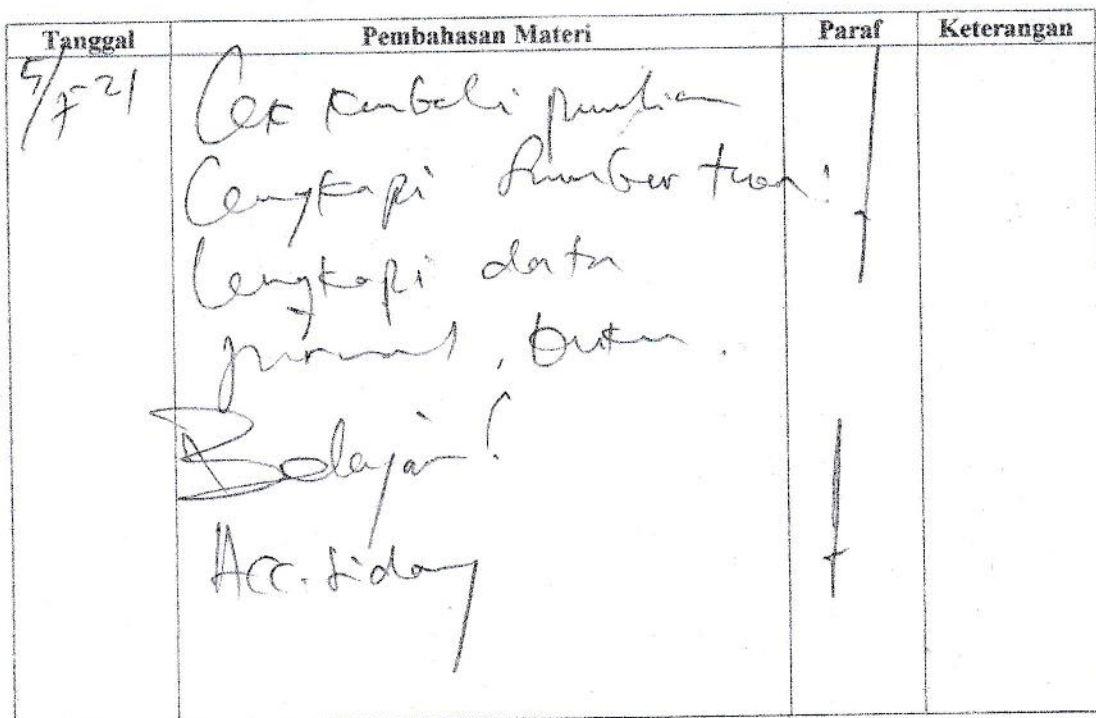 Tanggal Pembahasan Materi Paraf Keterangan
5/7-21
Cek kembali penulisan
Lengkapi Sumber teori
Lengkapi data
jurnal, buku.
Belajar!
Acc. Sidang